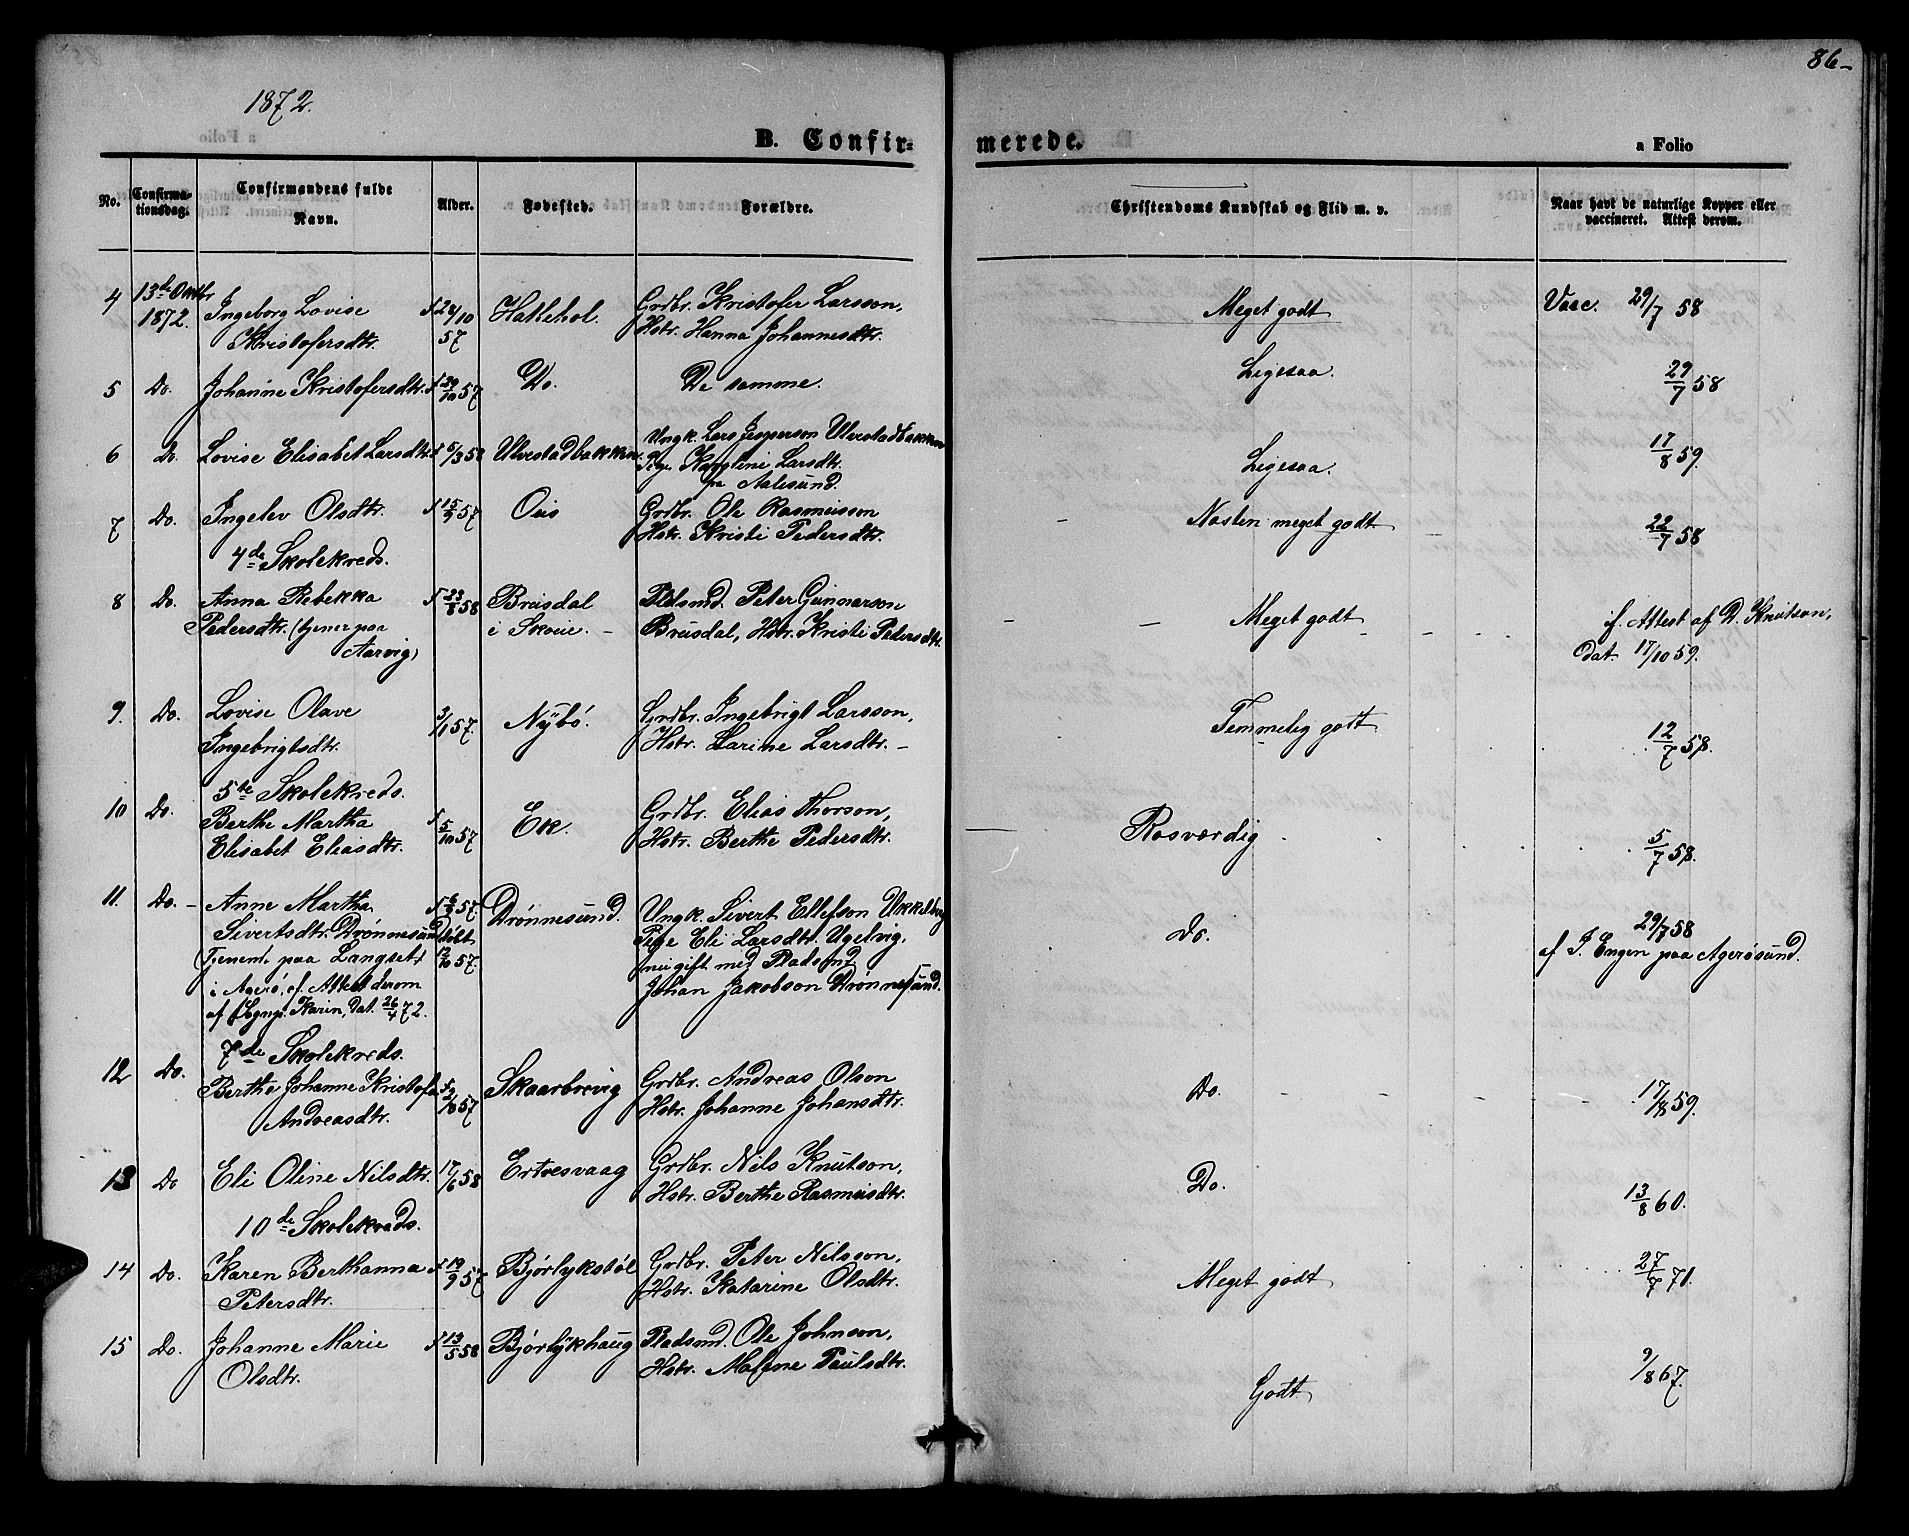 86
1872.
B. Confirmerede.
a Folio
No.
Confirmationsdag.
Confirmandens fulde Navn.
Alder.
Fødested.
Forældre.
Christendoms Kundskab og Flid m. v.
Naar havt de naturlige Kopper eller vaccineret. Attest derom.
4 13de Oktbr 1872. Ingeborg Lovise Kristofersdtr. 24/10 57 Hattehol. Grdbr. Kristofer Larsson, Hstr. Hanna Johannesdtr. Meget godt Vacc. 29/7 58
5 Do. Johanne Kristofersdtr. 57 Do. De samme. Ligesaa. 29/7 58
6 Do. Lovise Elisabet Larsdtr. Ulvestadbakken. Ungk. Lars Jesperson Ulvestadbakken Pige Karoline Larsdtr. fra Aalesund. Ligesaa. 17/8 59.
7 Do. Ingelev Olsdtr. 57 Ous Grdbr. Ole Rasmusson Hstr. Kristi Pedersdtr. Næsten meget godt 22/7 58
4de Skolekreds.
8 Do. Anna Rebekka Pedersdtr. (tjener paa Aarvig) 23/8 58 Brusdal i Skoue. Pladsmd. Peter Gunnarson Brusdal, Hstr. Kristi Pedersdtr. Meget godt cf. Attest af D. Knutson, dat. 17/10 59.
9. Do. Lovise Olave Ingebrigtsdtr. 3/1 57. Nybø. Grdbr. Ingebrigt Larsson, Hstr. Larine Larsdtr. Temmelig godt 12/7 58.
5te Skolekreds.
10 Do. Berthe Martha Elisabet Eliasdtr. 5/10 57 Ek. Grdbr. Elias Thorson, Hstr. Berthe Pedersdtr. Rosværdig 5/7 58.
11. Do. Anne Martha Sivertsdtr. Drønnesund Tjenent paa Langset i Agerø, cf. Attest derom af Sognp. Karin, dat. 26/4 72. 57. døbt 57. Drønnesund. Ungk. Sivert Ellefson Ukkelberg Pige Eli Larsdtr. Ugelvig, nu gift med Pladsmd Johan Jakobson Drønnesund. Do. 29/7 58 af J. Engen paa Agerøsund.
7de Skolekreds.
12 Do. Berthe Johanne Kristofa Andreasdtr. 57 Skaarbrevig Grdbr. Andreas Olson Hstr. Johanne Johansdtr. Do. 17/8 59.
13 Do Eli Oline Nilsdtr. 17/6 58 Ertvesvaag Grdbr. Nils Knutson, Hstr. Berthe Rasmusdtr. Do. 13/8 60.
10de Skolekreds.
14 Do. Karen Berthanna Petersdtr. 19/9 57 Bjørlykstøl Grdbr. Peter Nilsson, Hstr. Katarine Olsdtr. Meget godt 27/7 71.
15 Do. Johanne Marie Olsdtr. 13/5 58 Bjørlykhaug Pladsmd. Ole Johnson, Hstr. Malene Paulsdtr. Godt 9/8 67.